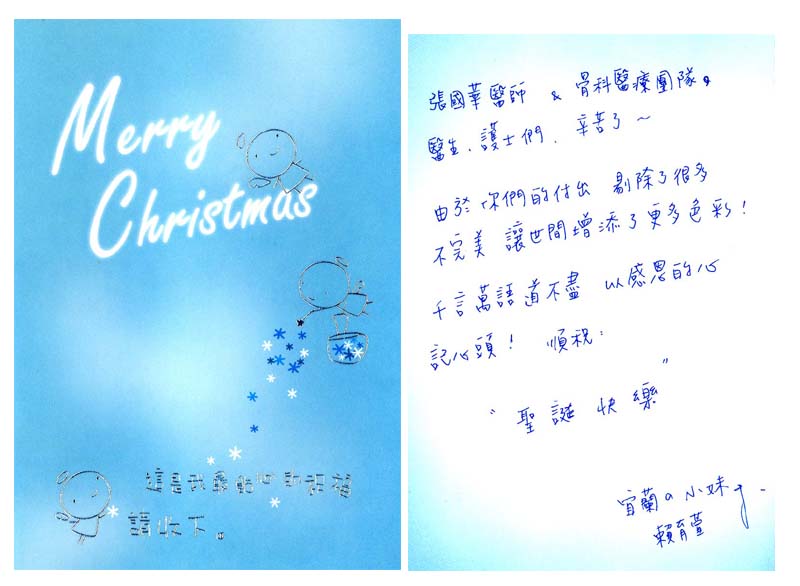 Merry
Christmas
這是我最貼心的祝福
請收下。
張國華醫師 & 骨科醫療團隊。
醫生、護士們、辛苦了～
由於你們的付出 剔除了很多
不完美 讓世間增添了更多色彩！
千言萬語道不盡 以感恩的心
記心頭！ 順祝：
“聖誕快樂”
宜蘭a小妹
賴育萱